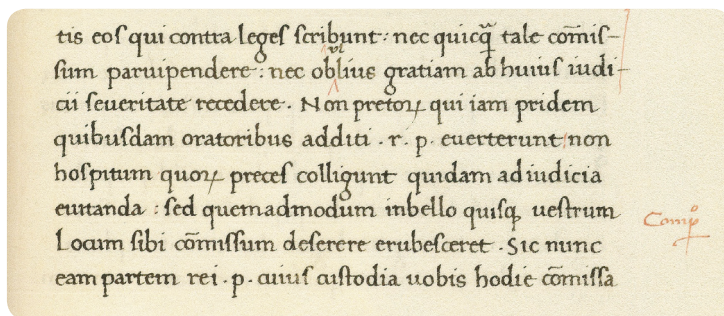 tis eos qui contra leges scribunt: nec quicq̃ᵘᵃ tale com̄is-
sum paruipendere: nec obulius gratiam ab huius iudi-
cii seueritate recedere. Non pretoꝝ qui iam pridem
quibusdam oratoribus additi .r. p. euerterunt non
hospitum quoꝝ preces colligunt quidam ad iudicia
euitanda: sed quemadmodum inbello quisqꝫ uestrum
Locum sibi com̄issum deserere erubesceret. Sic nunc
eam partem rei .p. cuius custodia uobis hodie com̄issa
Compº